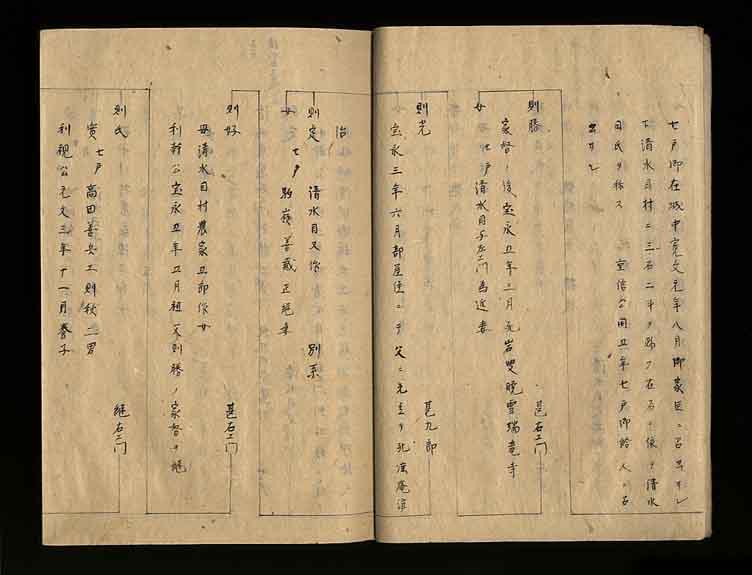 七戸御在城中寛文元年八月御家臣ニ召出サレ
下清水目村ニ三石二斗ヲ賜フ在名ニ依テ清水
目氏ヲ称ス 重信公同五年七戸御給人ニ召
出サル
則勝 甚右エ門
家督ノ後宝永五年三月死岩雙暁雲瑞竜寺
女 七戸清水目 左エ門為近妻
則光 甚九郎
宝永三年六月部屋住ニテ父ニ先立テ死
治
則定 清水目又作 別系
女 七戸 善蔵正 妻
則好 甚右エ門
母清水目村農家五郎作女
利幹公宝永五年五月祖父則勝ノ家督ヲ継
則氏 継右エ門
実七戸高田善兵エ則秋二男
利視公元文三年十一月養子